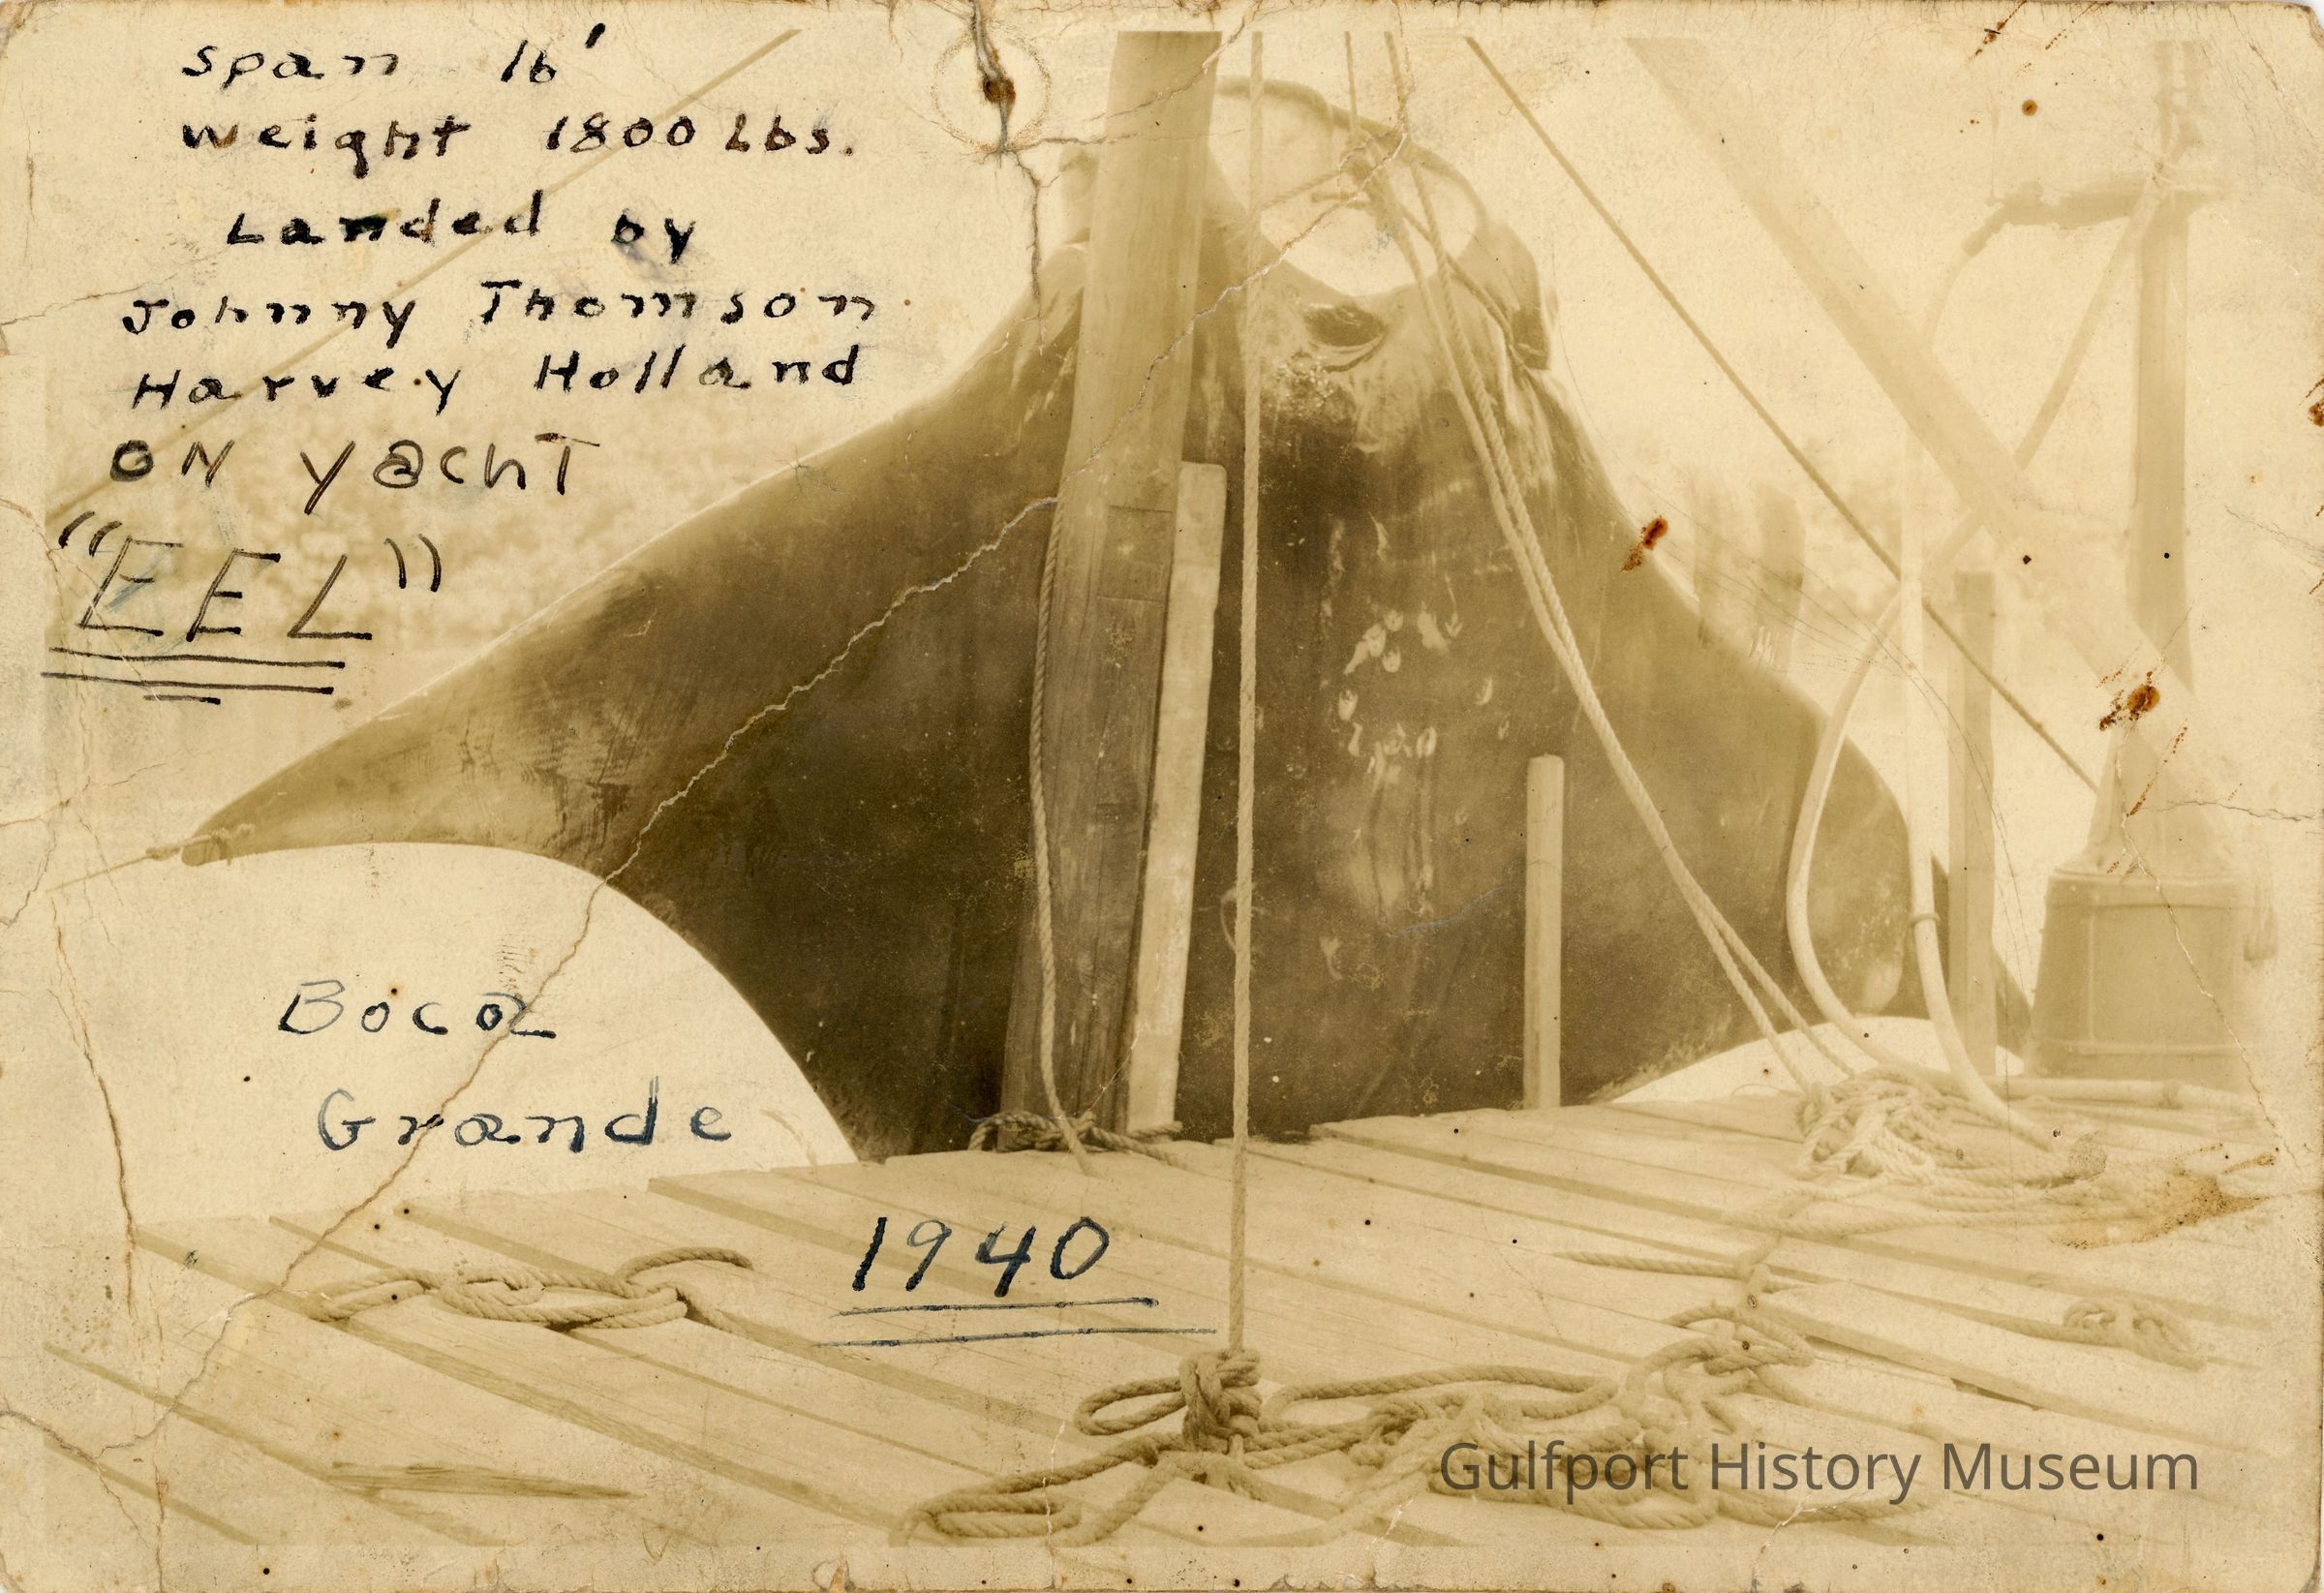 Span 16'
Weight 1800 Lbs.
Landed by
Johnny Thomson
Harvey Holland
ON YachT
"EEL"
Boca
Grande
1940
Gulfport History Museum